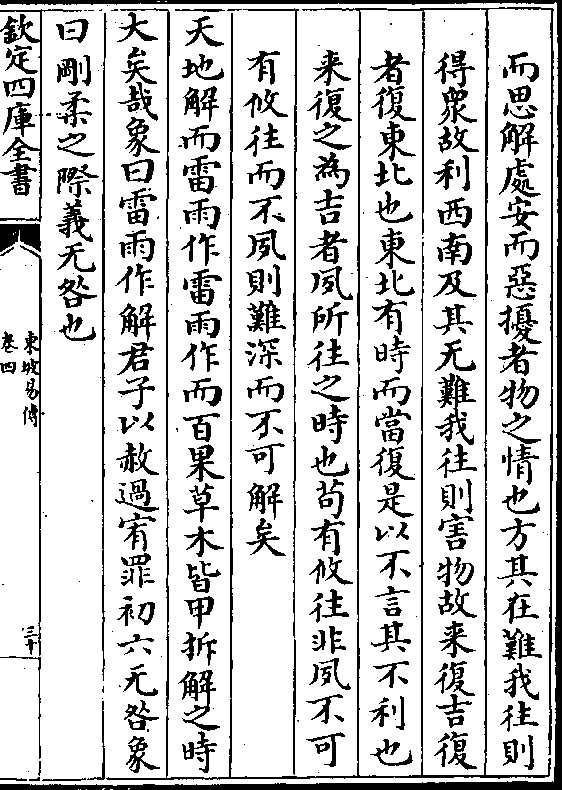 而思解處安而惡擾者物之情也方其在難我往則
得衆故利西南及其无難我往則害物故来復吉復
者復東北也東北有時而當復是以不言其不利也
来復之為吉者夙所往之時也苟有攸往非夙不可
有攸往而不夙則難深而不可解矣
天地解而雷雨作雷雨作而百果草木皆甲拆解之時
大矣哉象曰雷雨作解君子以赦過宥罪初六无咎象
曰剛柔之際義无咎也
欽定四庫全書
東坡易傳
卷四
三十